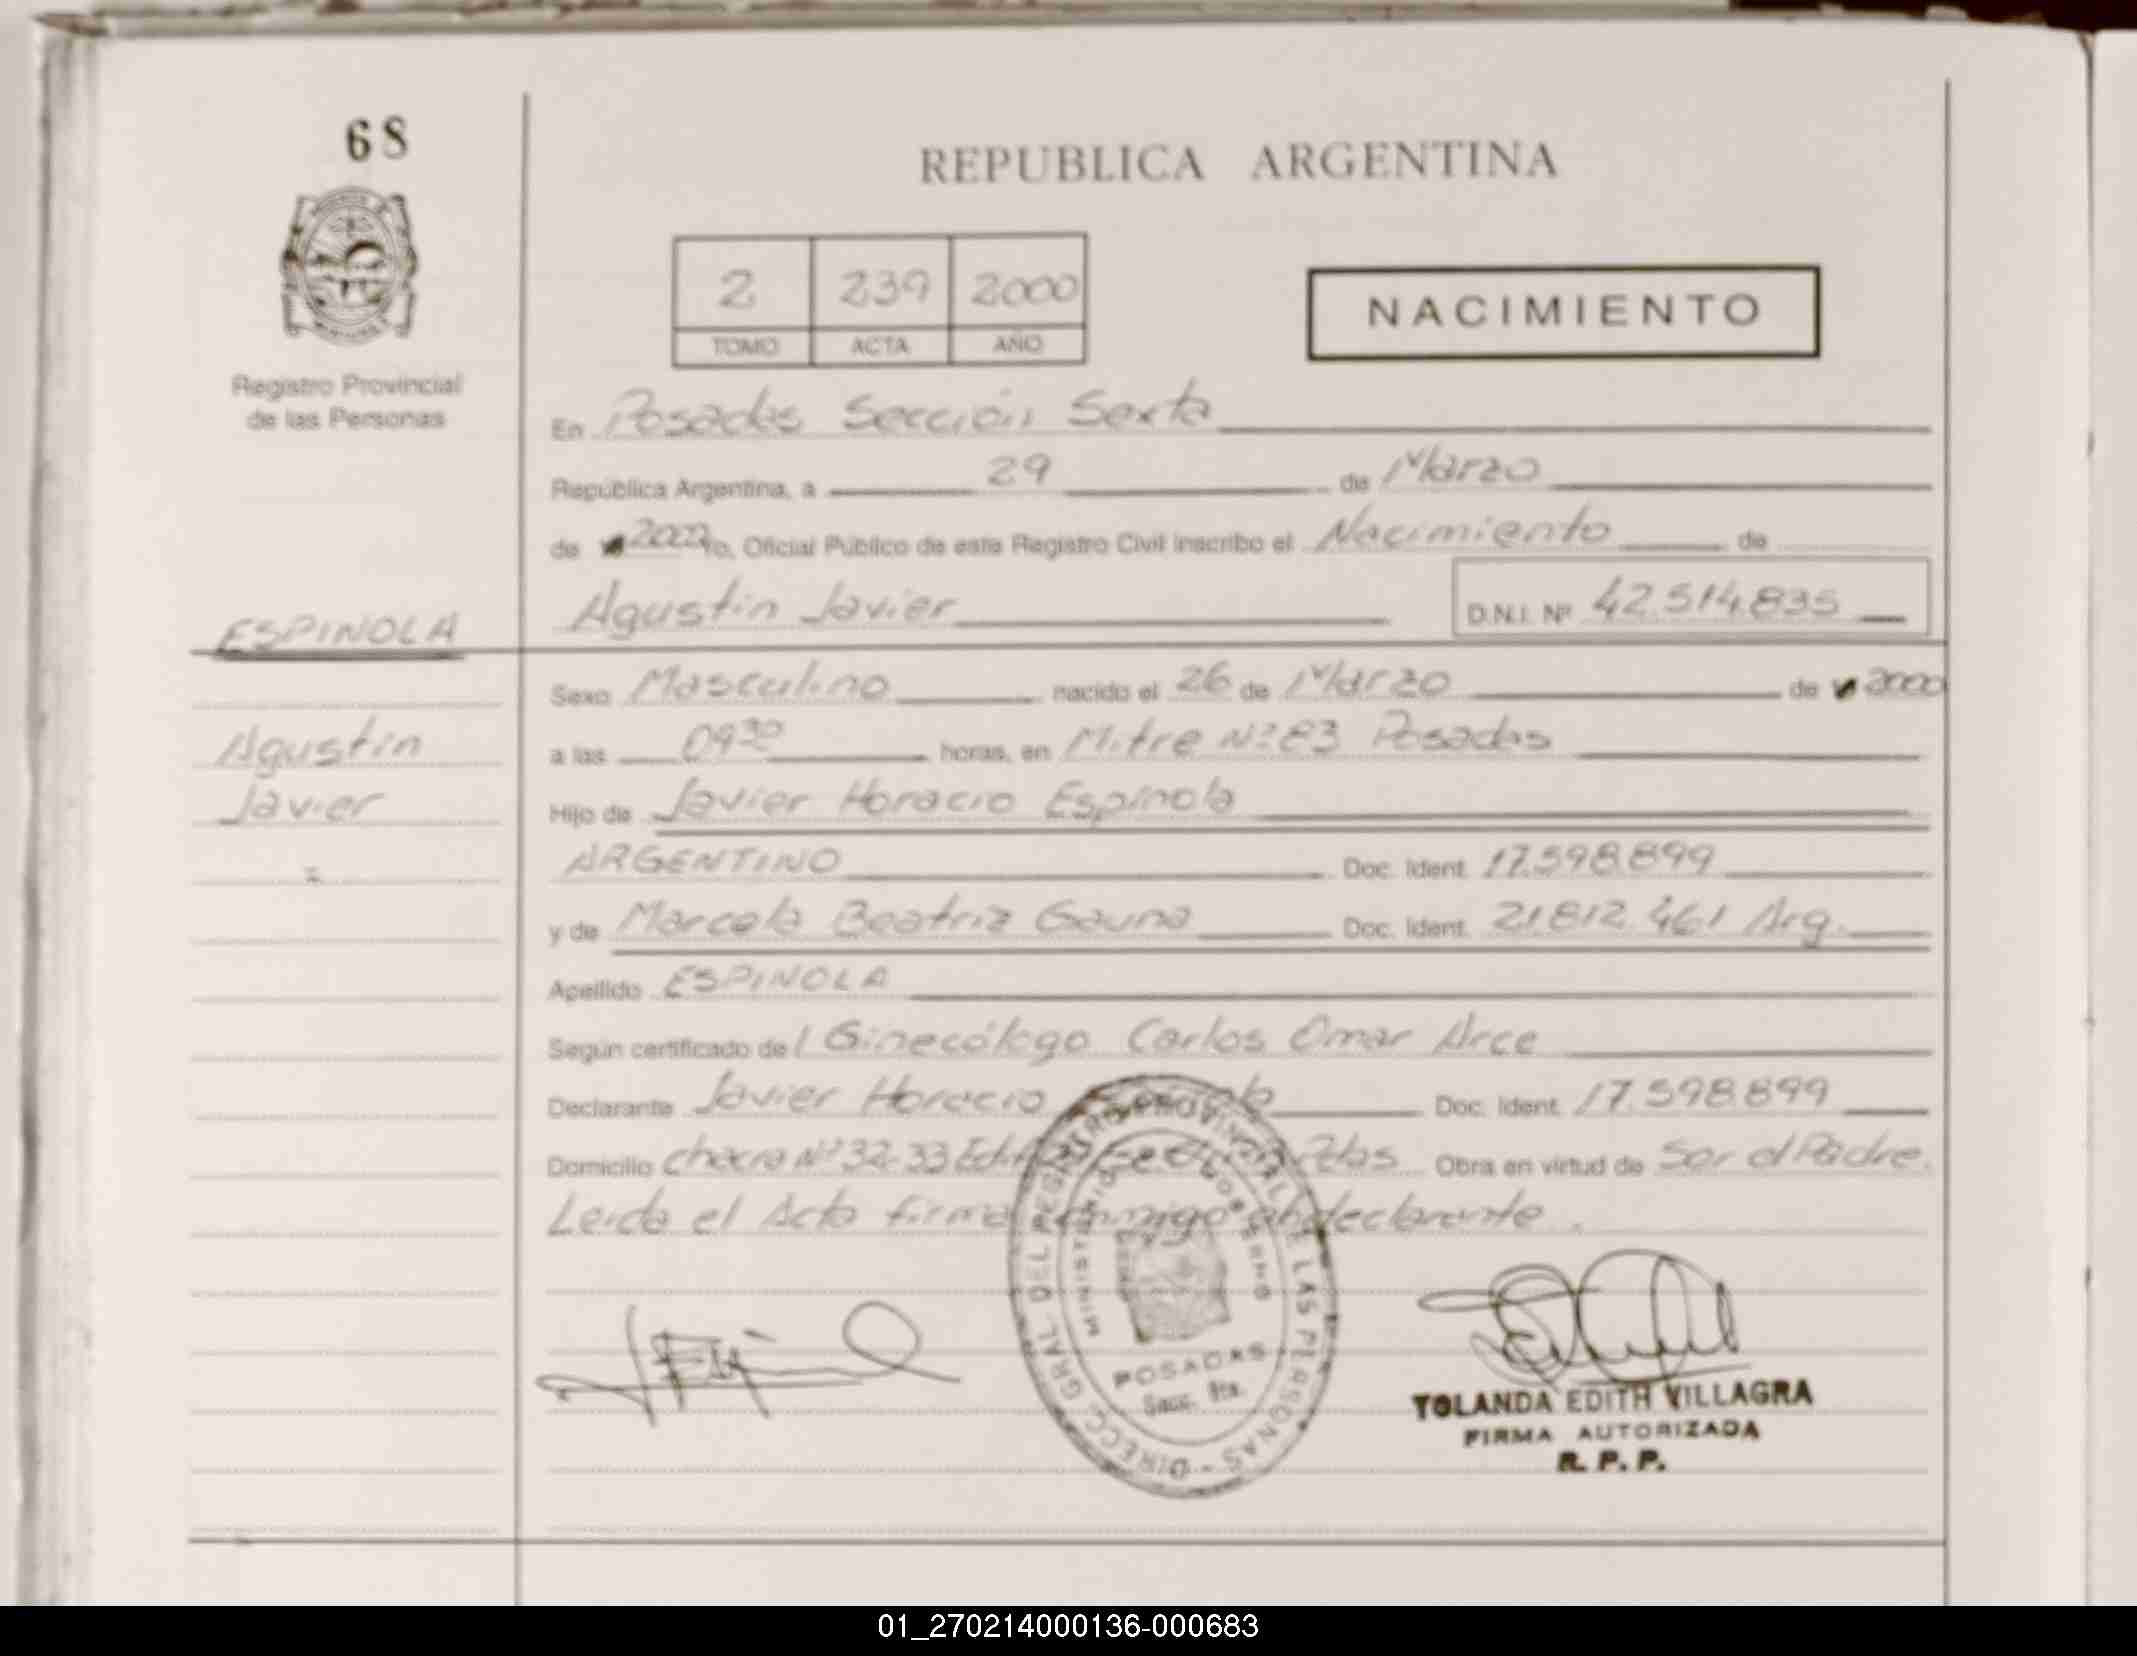 68
REPUBLICA ARGENTINA
2 239 2000
TOMO ACTA AÑO
NACIMIENTO
Registro Provincial
de las Personas
En Posadas Sección Sexta
República Argentina, a 29 de Marzo
de 2000 Yo, Oficial Público de este Registro Civil inscribo el Nacimiento de
Agustin Javier D.N.I. Nº 42.514.835
ESPINOLA
Agustin
Javier
Sexo Masculino nacido el 26 de Marzo de 2000
a las 09 30 horas, en Mitre Nº 83 Posadas
Hijo de Javier Horacio Espinola
ARGENTINO Doc. Ident. 17.598.899
y de Marcela Beatriz Gauna Doc. Ident. 21.812.461 Arg.
Apellido ESPINOLA
Según certificado del Ginecólogo Carlos Omar Arce
Declarante Javier Horacio Doc. Ident. 17.598.899
Domicilio chacra Nº 32-33 Pdas Obra en virtud de Ser el Padre.
Leida el Acta firma conmigo el declarante.
DIRECC. GRAL. DEL REGISTRO PROVINCIAL DE LAS PERSONAS
MINISTERIO DE GOBIERNO
POSADAS
Secc. 6ta.
YOLANDA EDITH VILLAGRA
FIRMA AUTORIZADA
R. P. P.
01_270214000136-000683